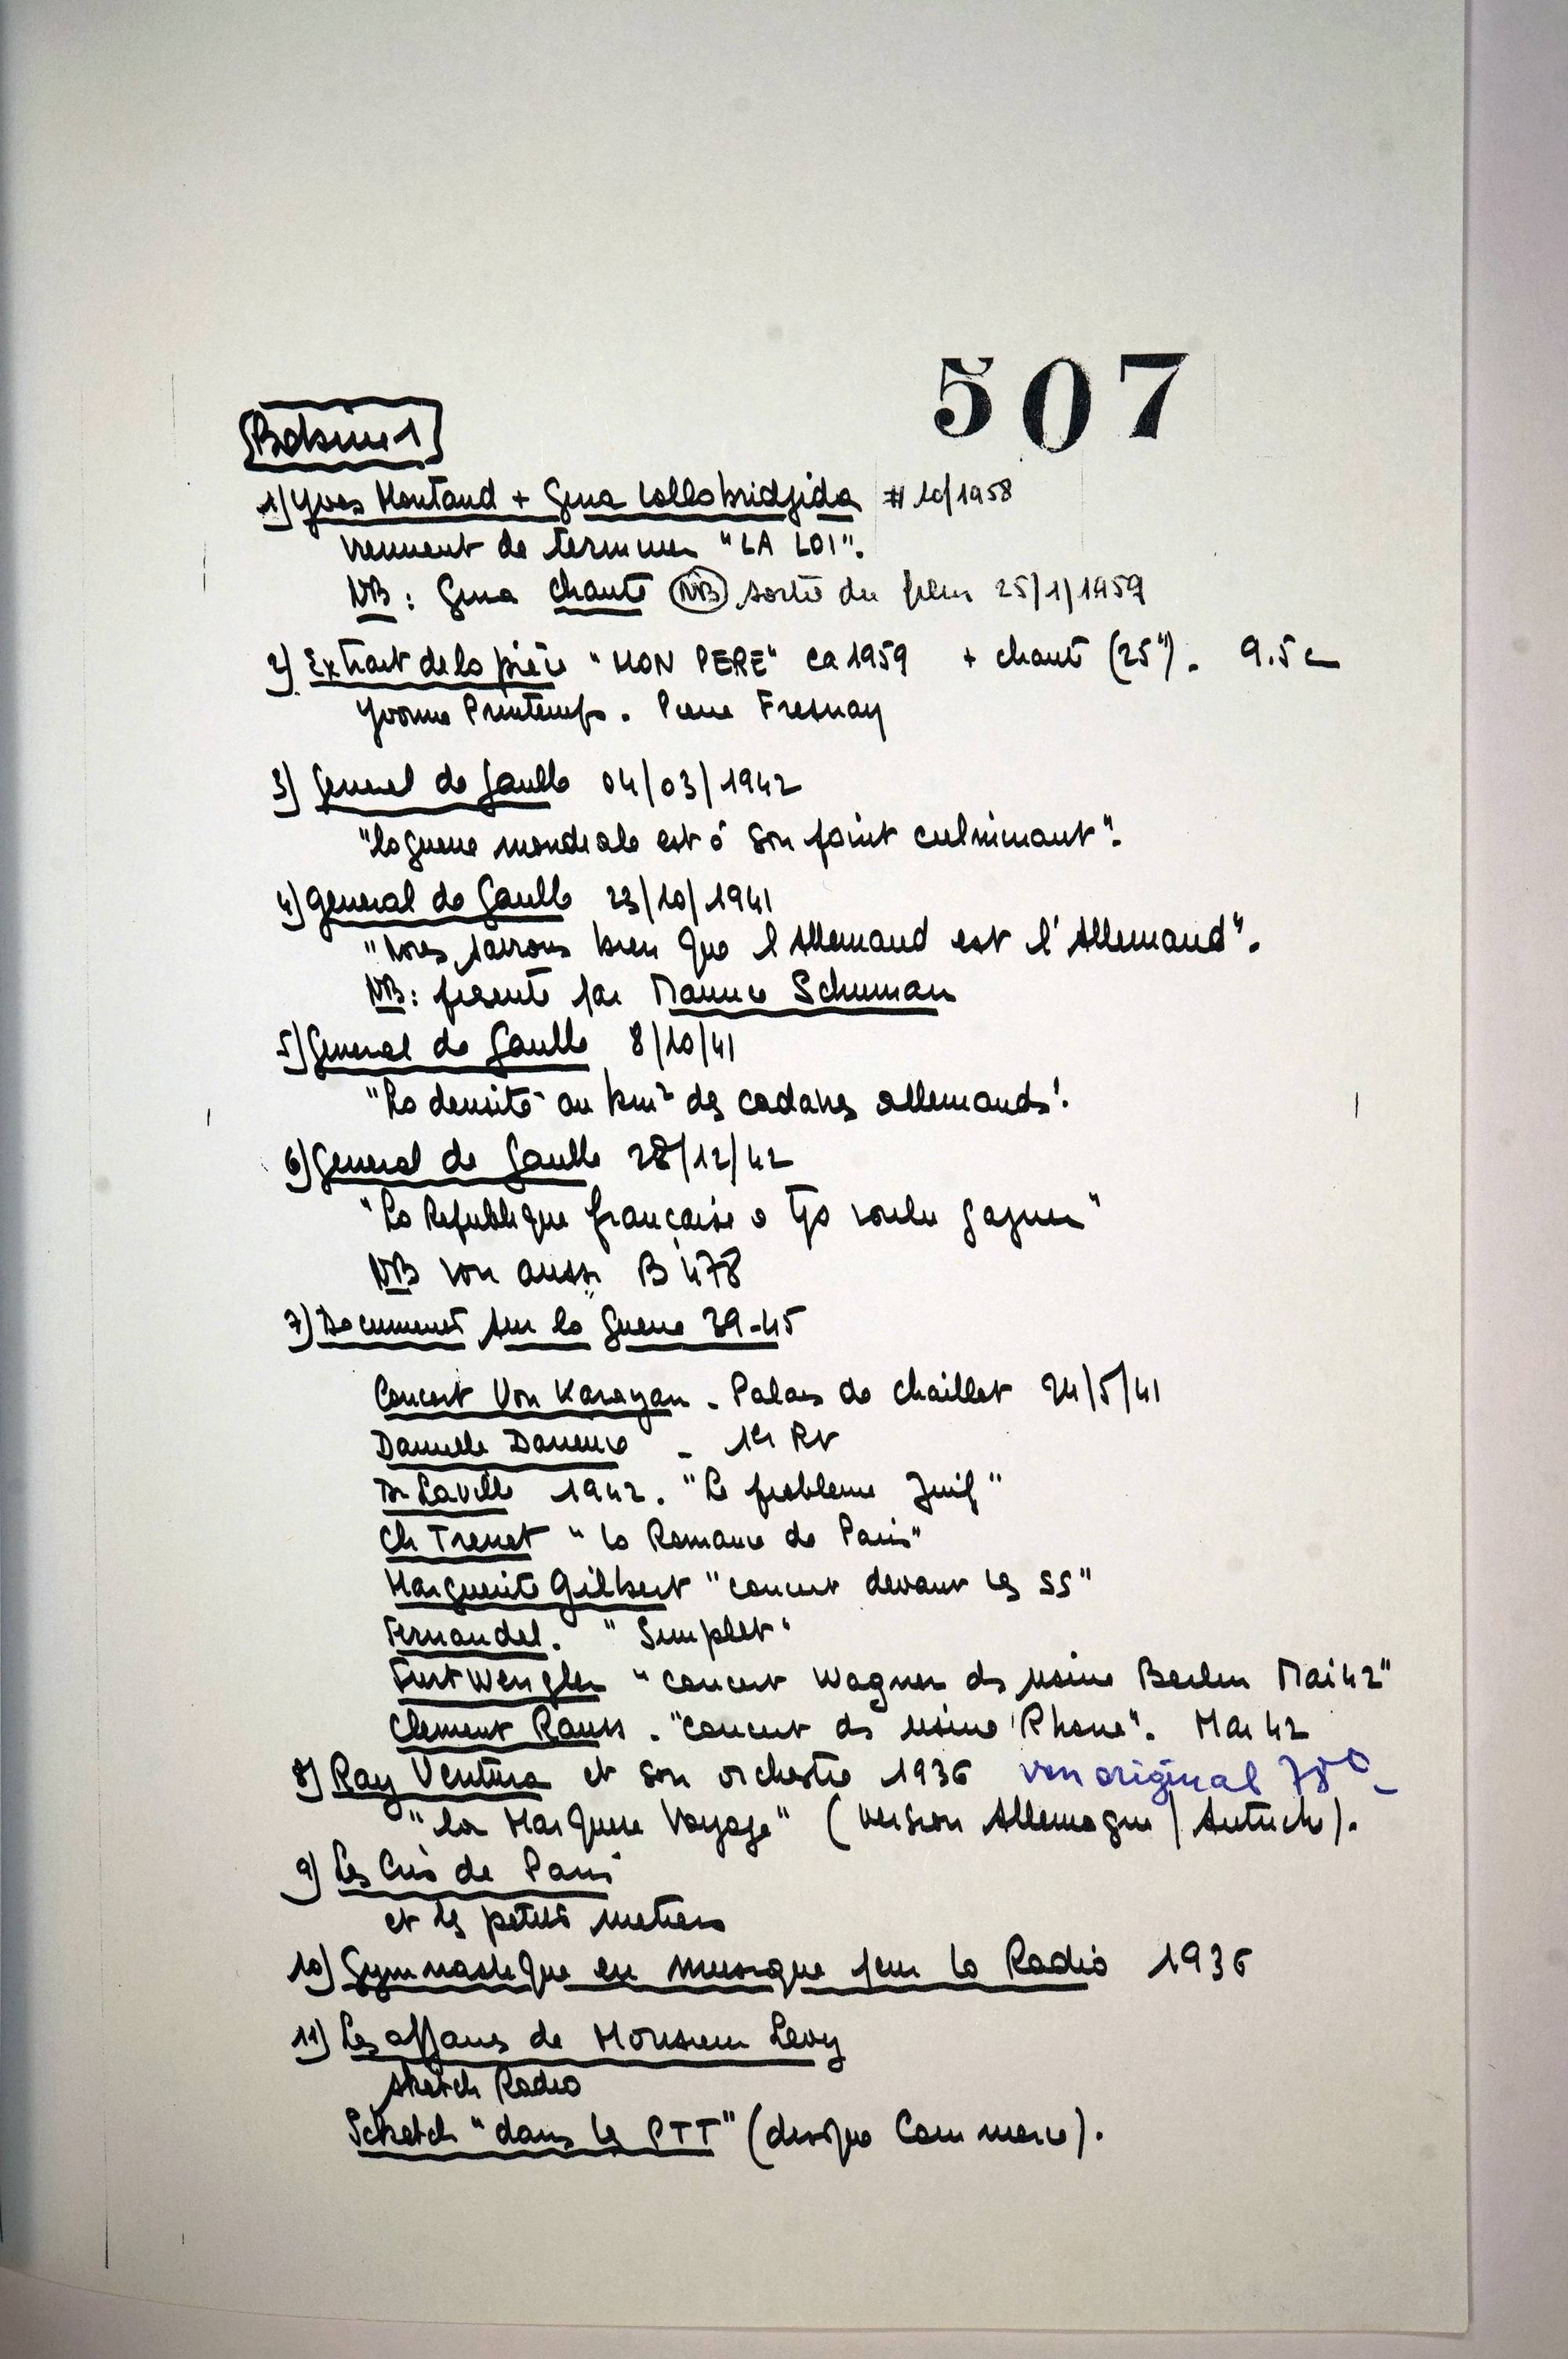 507
Bobine 1
1) Yves Montand + Gina Lollobridjida # 10/1958
viennent de terminer "LA LOI".
NB : Gina chante NB sortie du film 25/1/1959
2) Extrait de la pièce "MON PERE" ca 1959 + chant (25"). 9.5 c
Yvonne Printemps. Pierre Fresnay
3) General de Gaulle 04/03/1942
"la guerre mondiale est à son point culminant".
4) General de Gaulle 23/10/1941
"Nous savons bien que l'Allemand est l'Allemand".
NB : presenté par Maurice Schuman
5) General de Gaulle 8/10/41
"La densité au km² des cadavres allemands".
6) General de Gaulle 28/12/42
"La Republique française a tjs voulu gagner"
NB voir aussi B 478
7) Document sur la guerre 39-45
Concert Von Karayan - Palais de Chaillot 24/5/41
Danielle Darrieux -
Dr Laville 1942. "Le probleme Juif"
Ch Trenet "la Romance de Paris"
Marguerite Gilbert "concert devant les SS"
Fernandel. "Simplet"
Furtwengler "concert Wagner ds usine Berlin Mai 42"
Clement Rauss. "concert ds usine Rhone". Mai 42
8) Ray Ventura et son orchestre 1936 voir original 78
"la Marquise Voyage" (version Allemagne / Autriche).
9) Les Cris de Paris
et les petits metiers
10) Gymnastique en musique pour la Radio 1936
11) Les affaires de Monsieur Levy
sketch Radio
Scketch "dans les PTT" (disque Commerce).